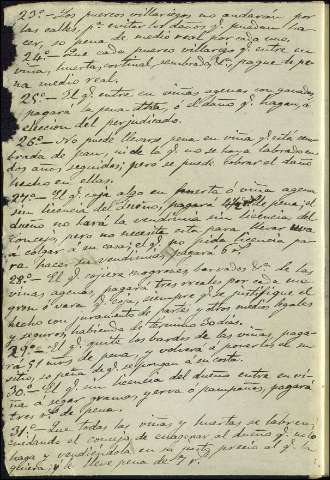 23ª- Los puercos villariegos no andarán por
las calles, pª evitar los daños q. puedan ha-
cer, so pena de medio real por cada uno.
24ª- Que cada puerco villariego q. entre en
viña, huerta, cortinal, sembrado &ª, pague de pe-
na medio real.
25ª- El q. entre en viñas agenas con ganados,
pagará la pena ó el daño q. hagan, á
elección del perjudicado.
26ª- No puede llevarse pena en viña q. esté sem-
brada de pan, ni de la q. no se haya labrado en
dos años seguidos; pero se puede cobrar el daño
hecho en ellas.
27ª- El q. coja algo en huerto ó viña agena
sin licencia del dueño, pagará pena; el
dueño no hará la vendimia sin licencia del
concejo, pero no necesita esta para llevar uva
á colgar á su casa; el q. no pida licencia pa-
ra hacer la vendimia, pagará 6 rª
28ª- El q. cojiera mogrones, barvados &ª de las
viñas agenas, pagará tres reales por cada mu-
grón ó vara q. coja, siempre q. se justifique el
hecho con juramento de partes y otros medios legales
y seguros, habiendo de término 30 días.
29ª- El q. quite los bardos de las viñas, paga-
rá 51 mrs de pena, y volverá á ponerlos al su
sitio, so peña de q. se pongan á su costa.
30ª- El q. sin licencia del dueño entre en vi-
ña á segar gramas, yerva ó pámpanos, pagará
tres rª de pena.
31ª- Que todas las viñas y huertas se labren;
cuidando el concejo de al dueño q. no lo
haga y vendiéndola en su justo precio al q. la
quiera; y le lleve pena de 7 rª